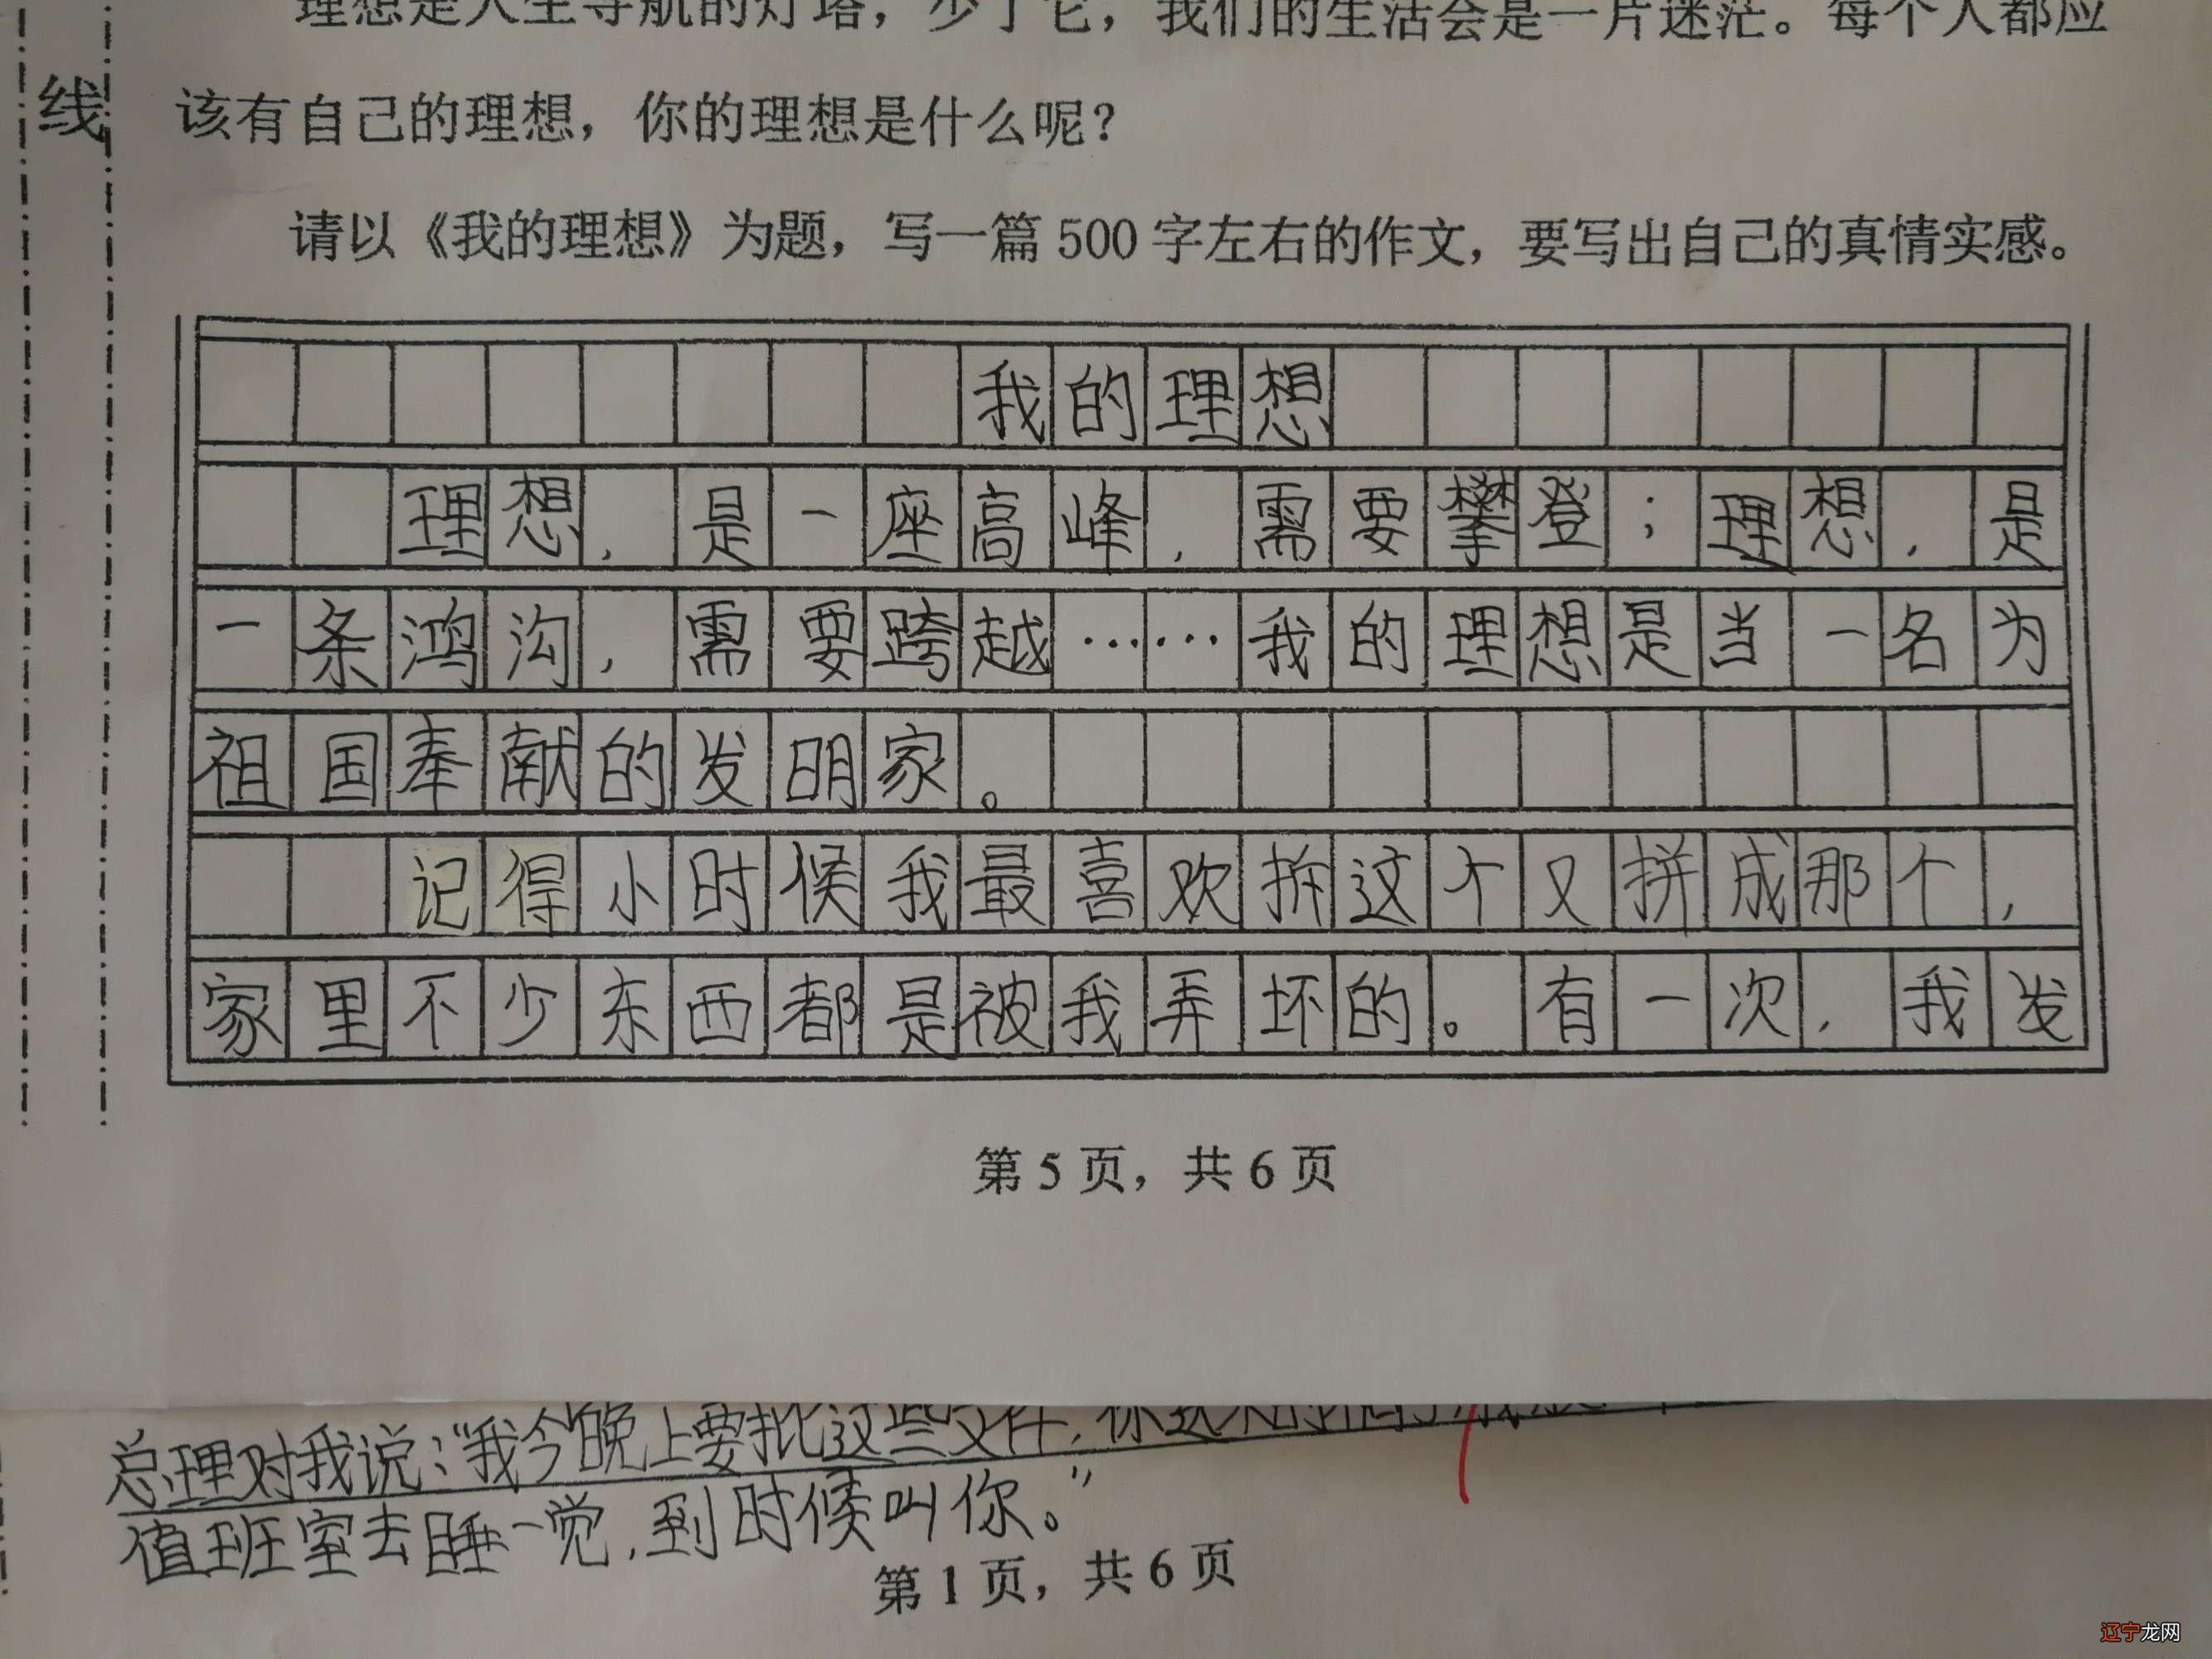 理想是人生导航的灯塔，少了它，我们的生活会是一片迷茫。每个人都应
线
该有自己的理想，你的理想是什么呢？
请以《我的理想》为题，写一篇 500 字左右的作文，要写出自己的真情实感。
我的理想
理想，是一座高峰，需要攀登；理想，是
一条鸿沟，需要跨越……我的理想是当一名为
祖国奉献的发明家。
记得小时候我最喜欢拆这个又拼成那个，
家里不少东西都是被我弄坏的。有一次，我发
第 5 页，共 6 页
总理对我说："我今晚上要批这些文件，你
值班室去睡一觉，到时候叫你。"
第 1 页，共 6 页
辽宁龙网